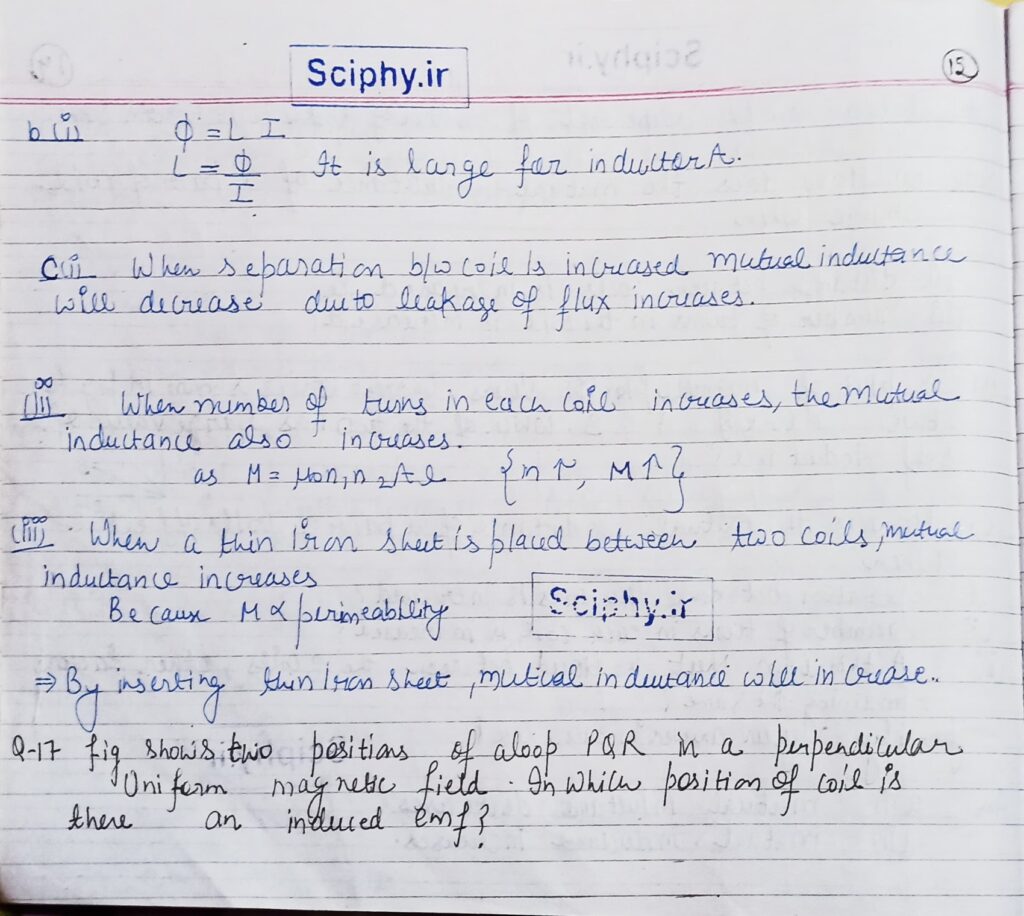 Sciphy.ir
15
b (i) ϕ = L I
L = ϕ/I It is large for inductor A.
C(i) When separation b/w coil is increased mutual inductance
will decrease due to leakage of flux increases.
(ii) When number of turns in each coil increases, the mutual
inductance also increases.
as M = μ₀n₁n₂Al {n↑, M↑}
(iii) When a thin iron sheet is placed between two coils, mutual
inductance increases
Because M ∝ permeability
Sciphy.ir
⇒ By inserting thin Iron sheet, mutual inductance will increase..
Q-17 fig shows two positions of a loop PQR in a perpendicular
Uniform magnetic field. In which position of coil is
there an induced emf?